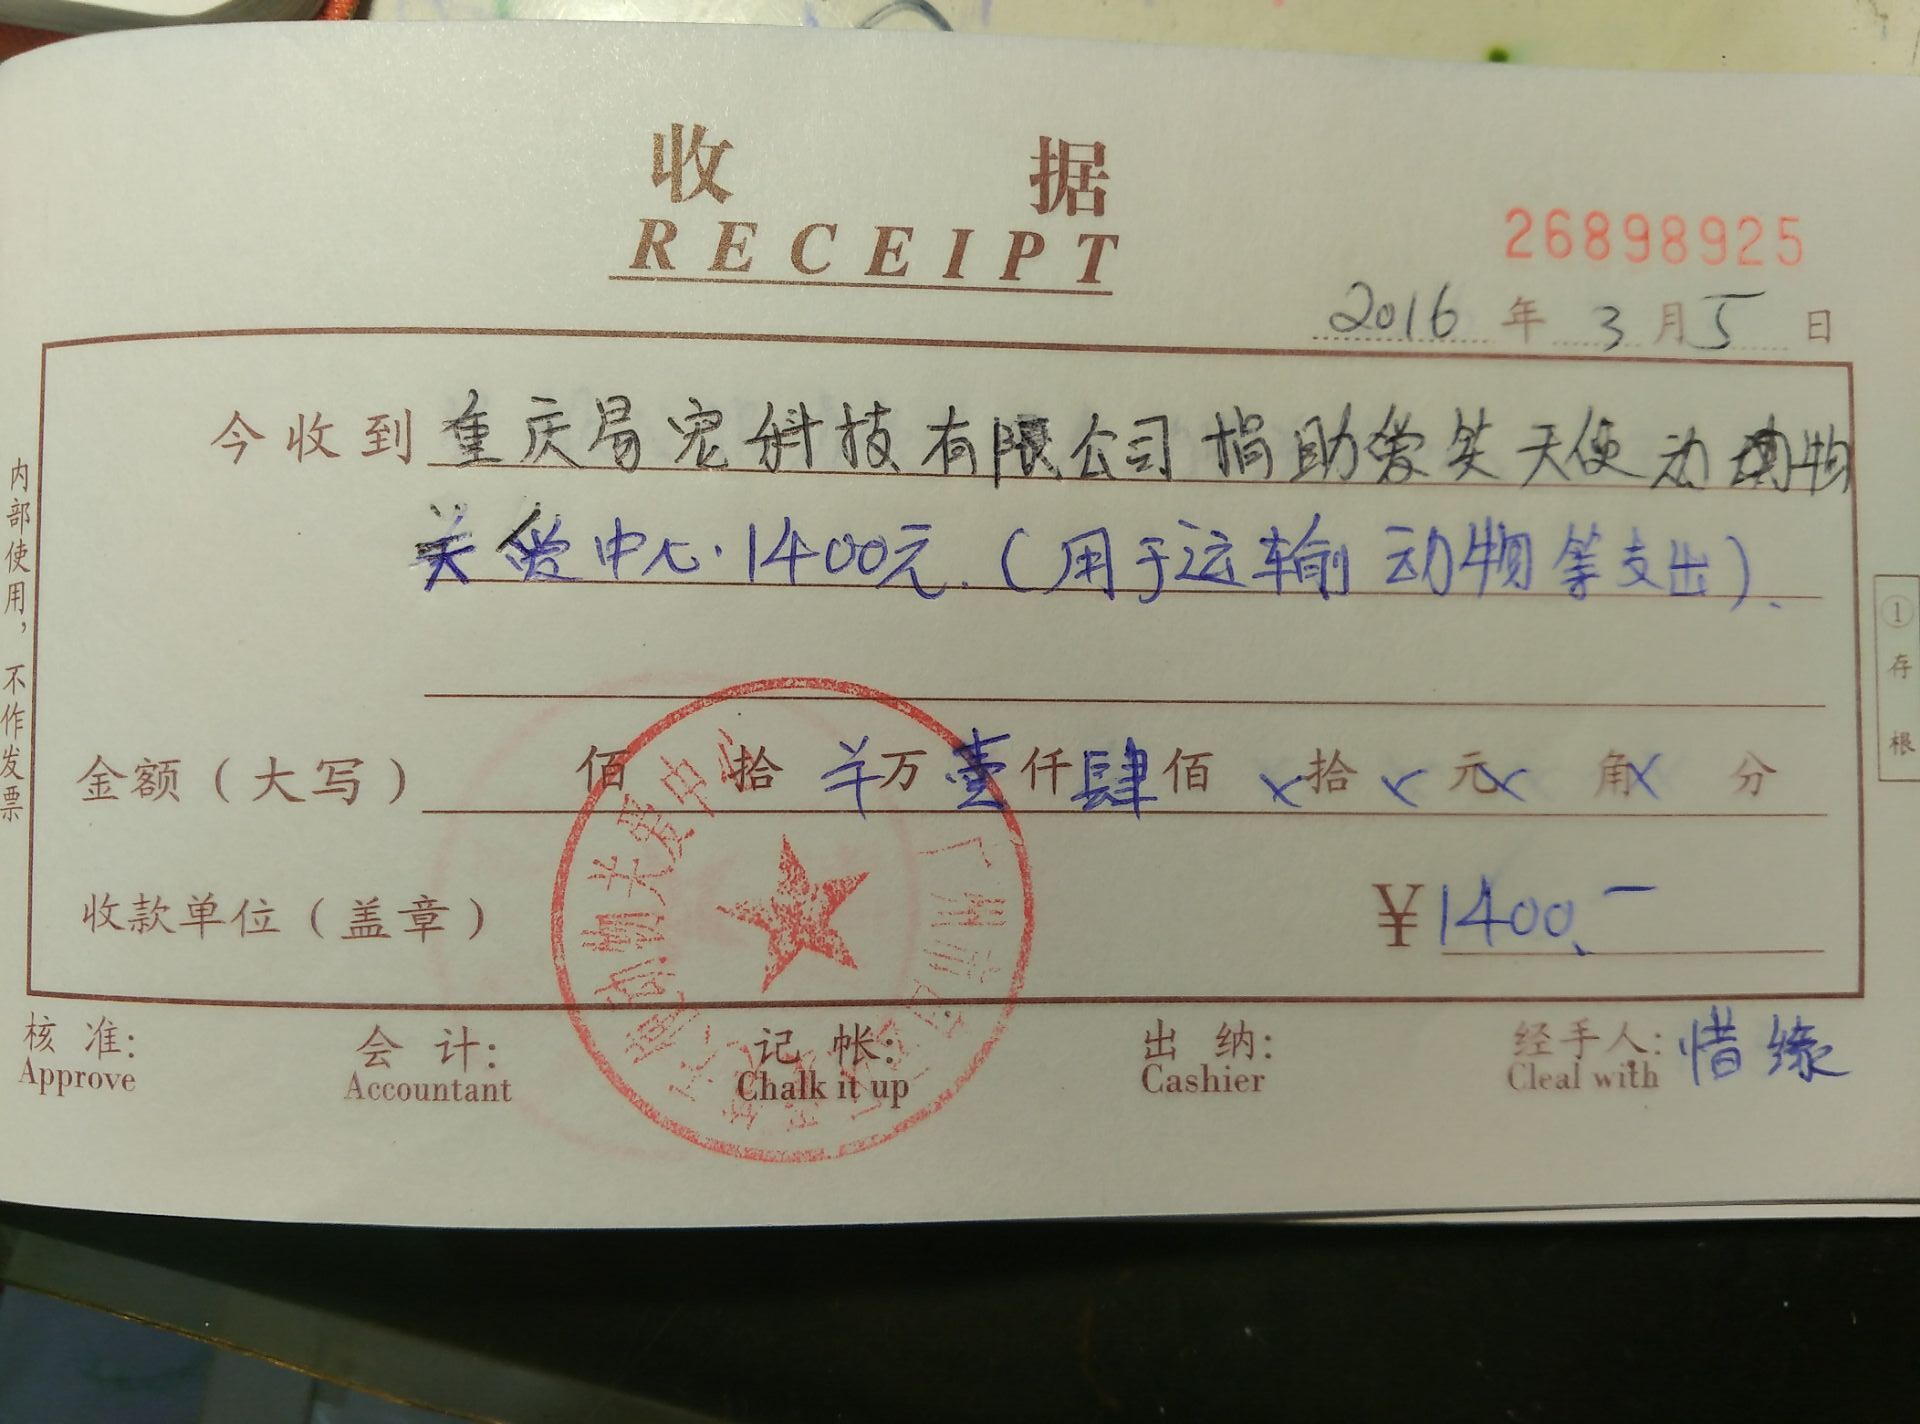 收 据
RECEIPT
26898925
2016 年 3 月 5 日
今收到 重庆易宠科技有限公司 捐助爱笑天使动物
关爱中心.1400元.(用于运输动物等支出).
金额(大写) 佰 拾 ¥万 壹仟 肆佰 ×拾 ×元 ×角 ×分
收款单位(盖章) ¥1400.-
核 准: 会 计: 记 帐: 出 纳: 经手人: 惜缘
Approve Accountant Chalk it up Cashier Cleal with
内部使用,不作发票
①存根
广州市 物关爱中心